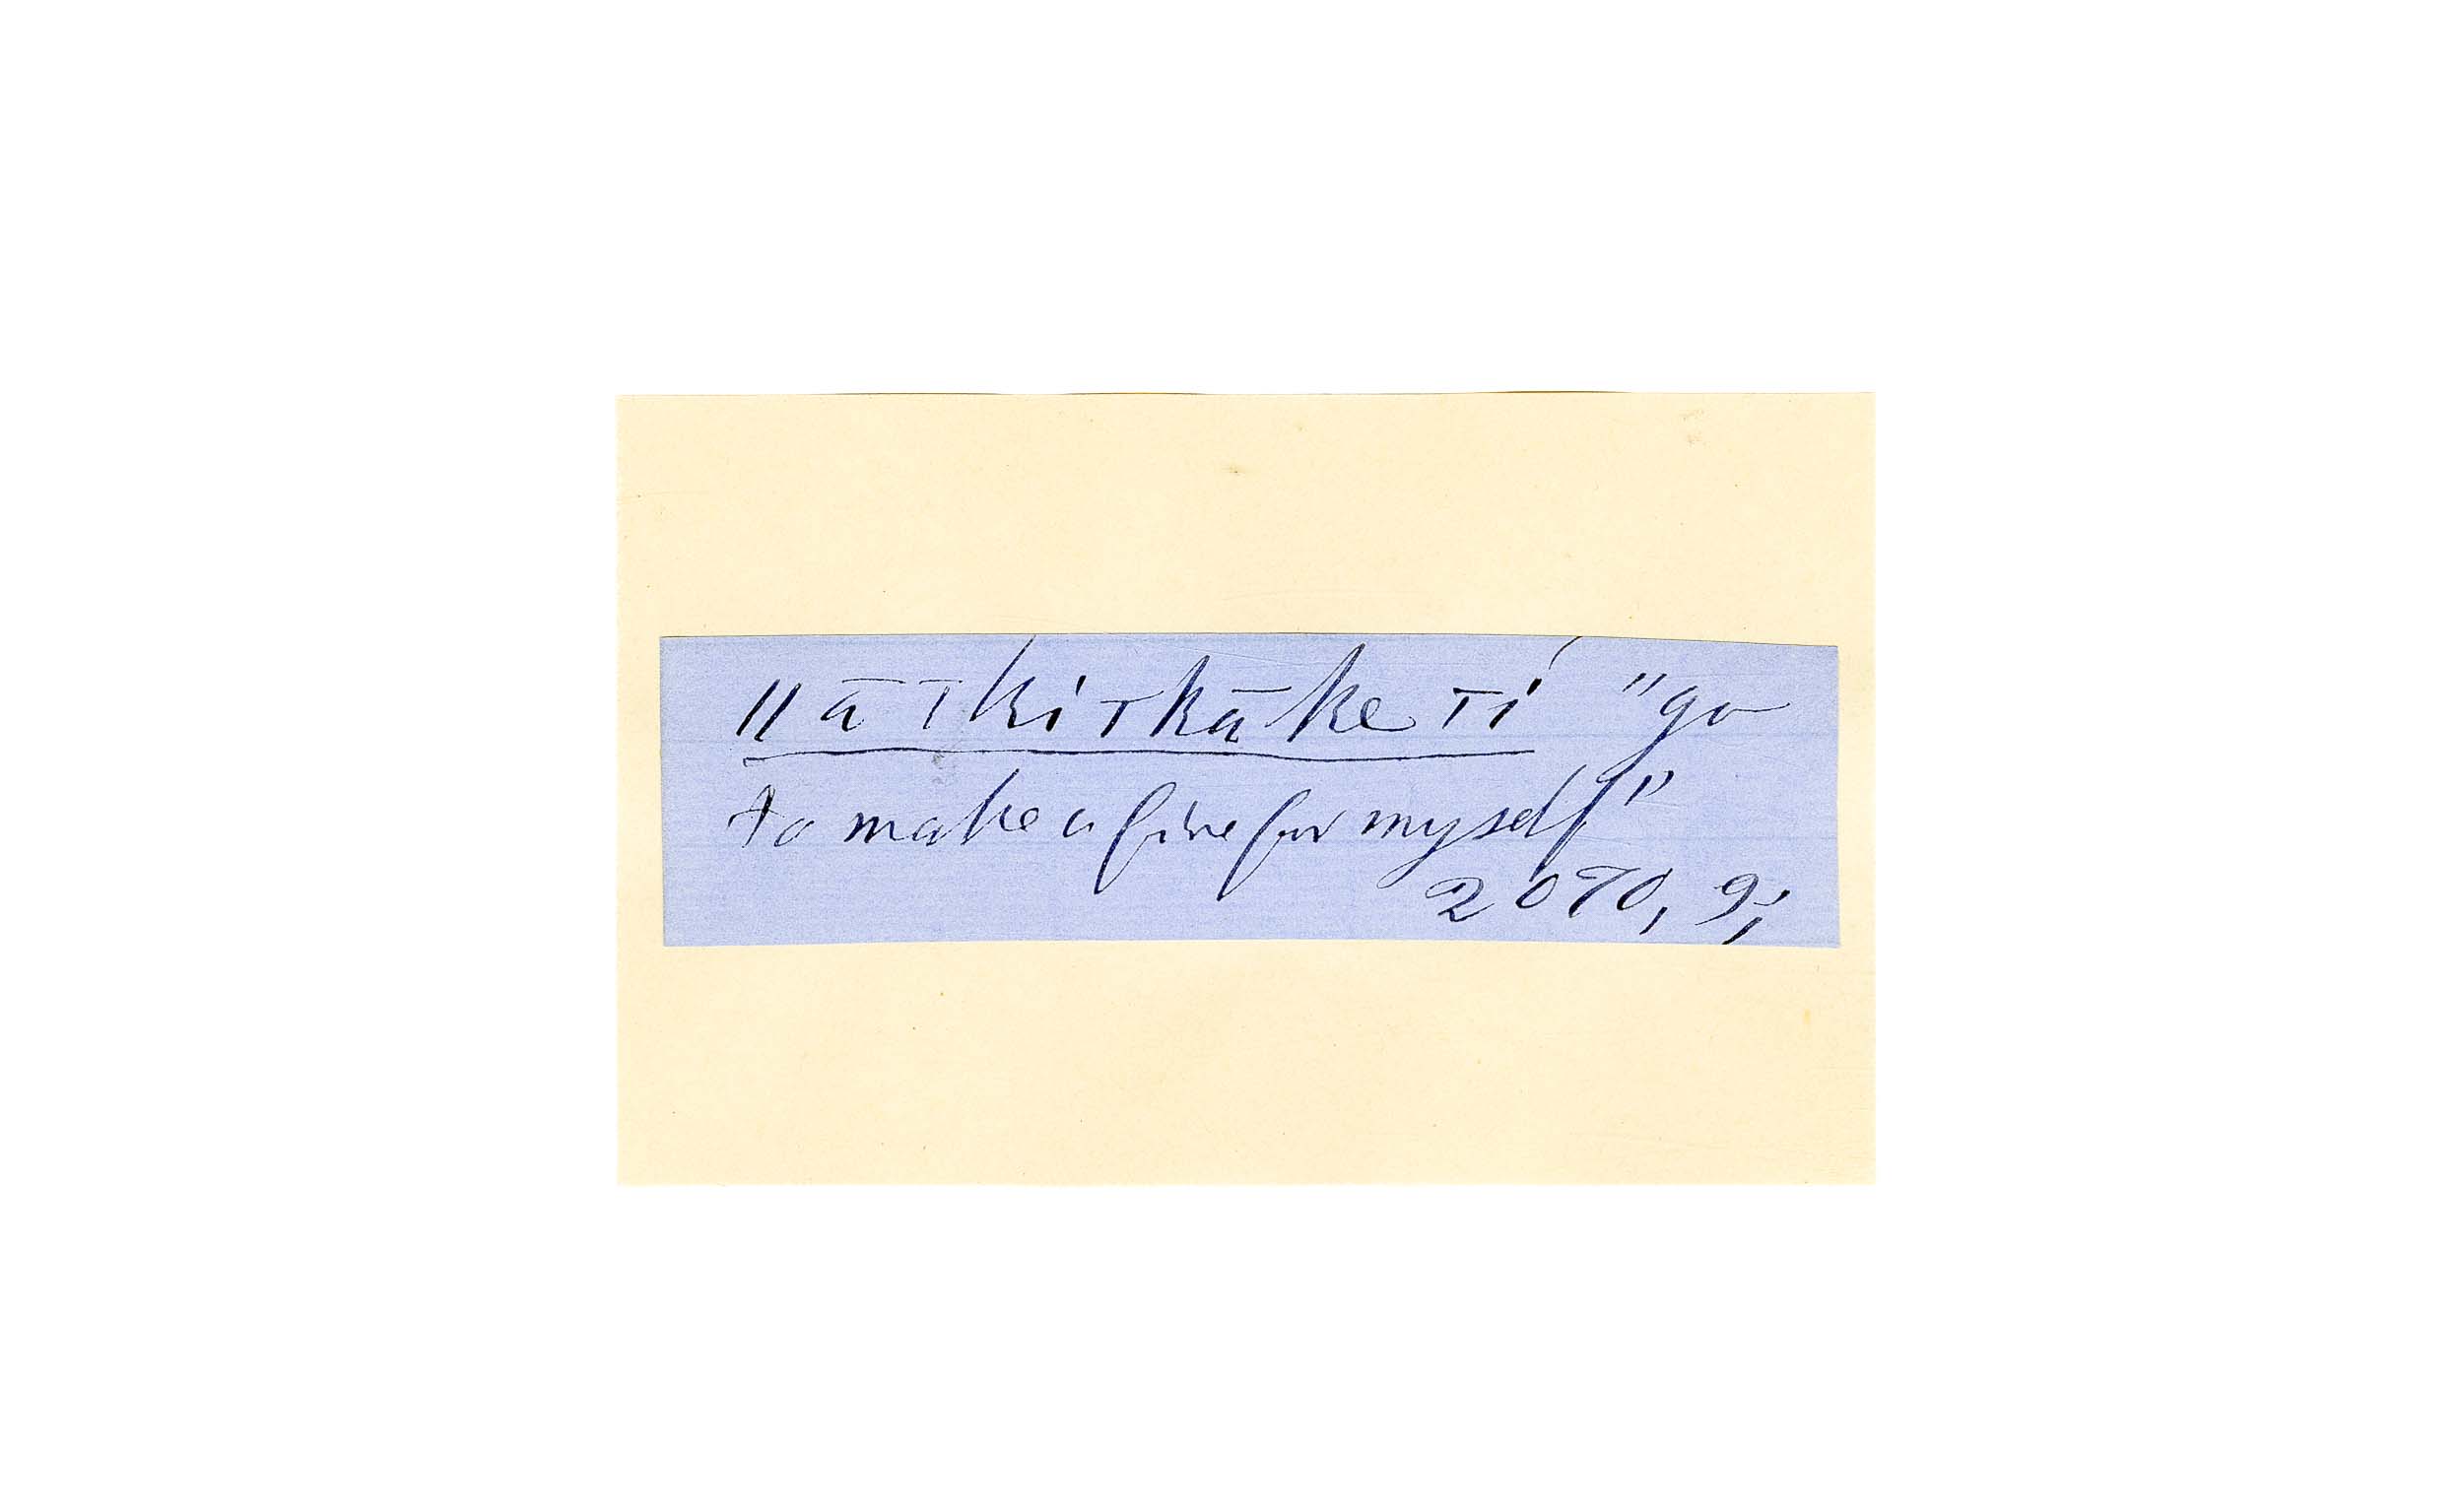 ǁā ꞇ ki ꞇkā ke ꞇi "go
to make a fire for myself"
2070, 9;